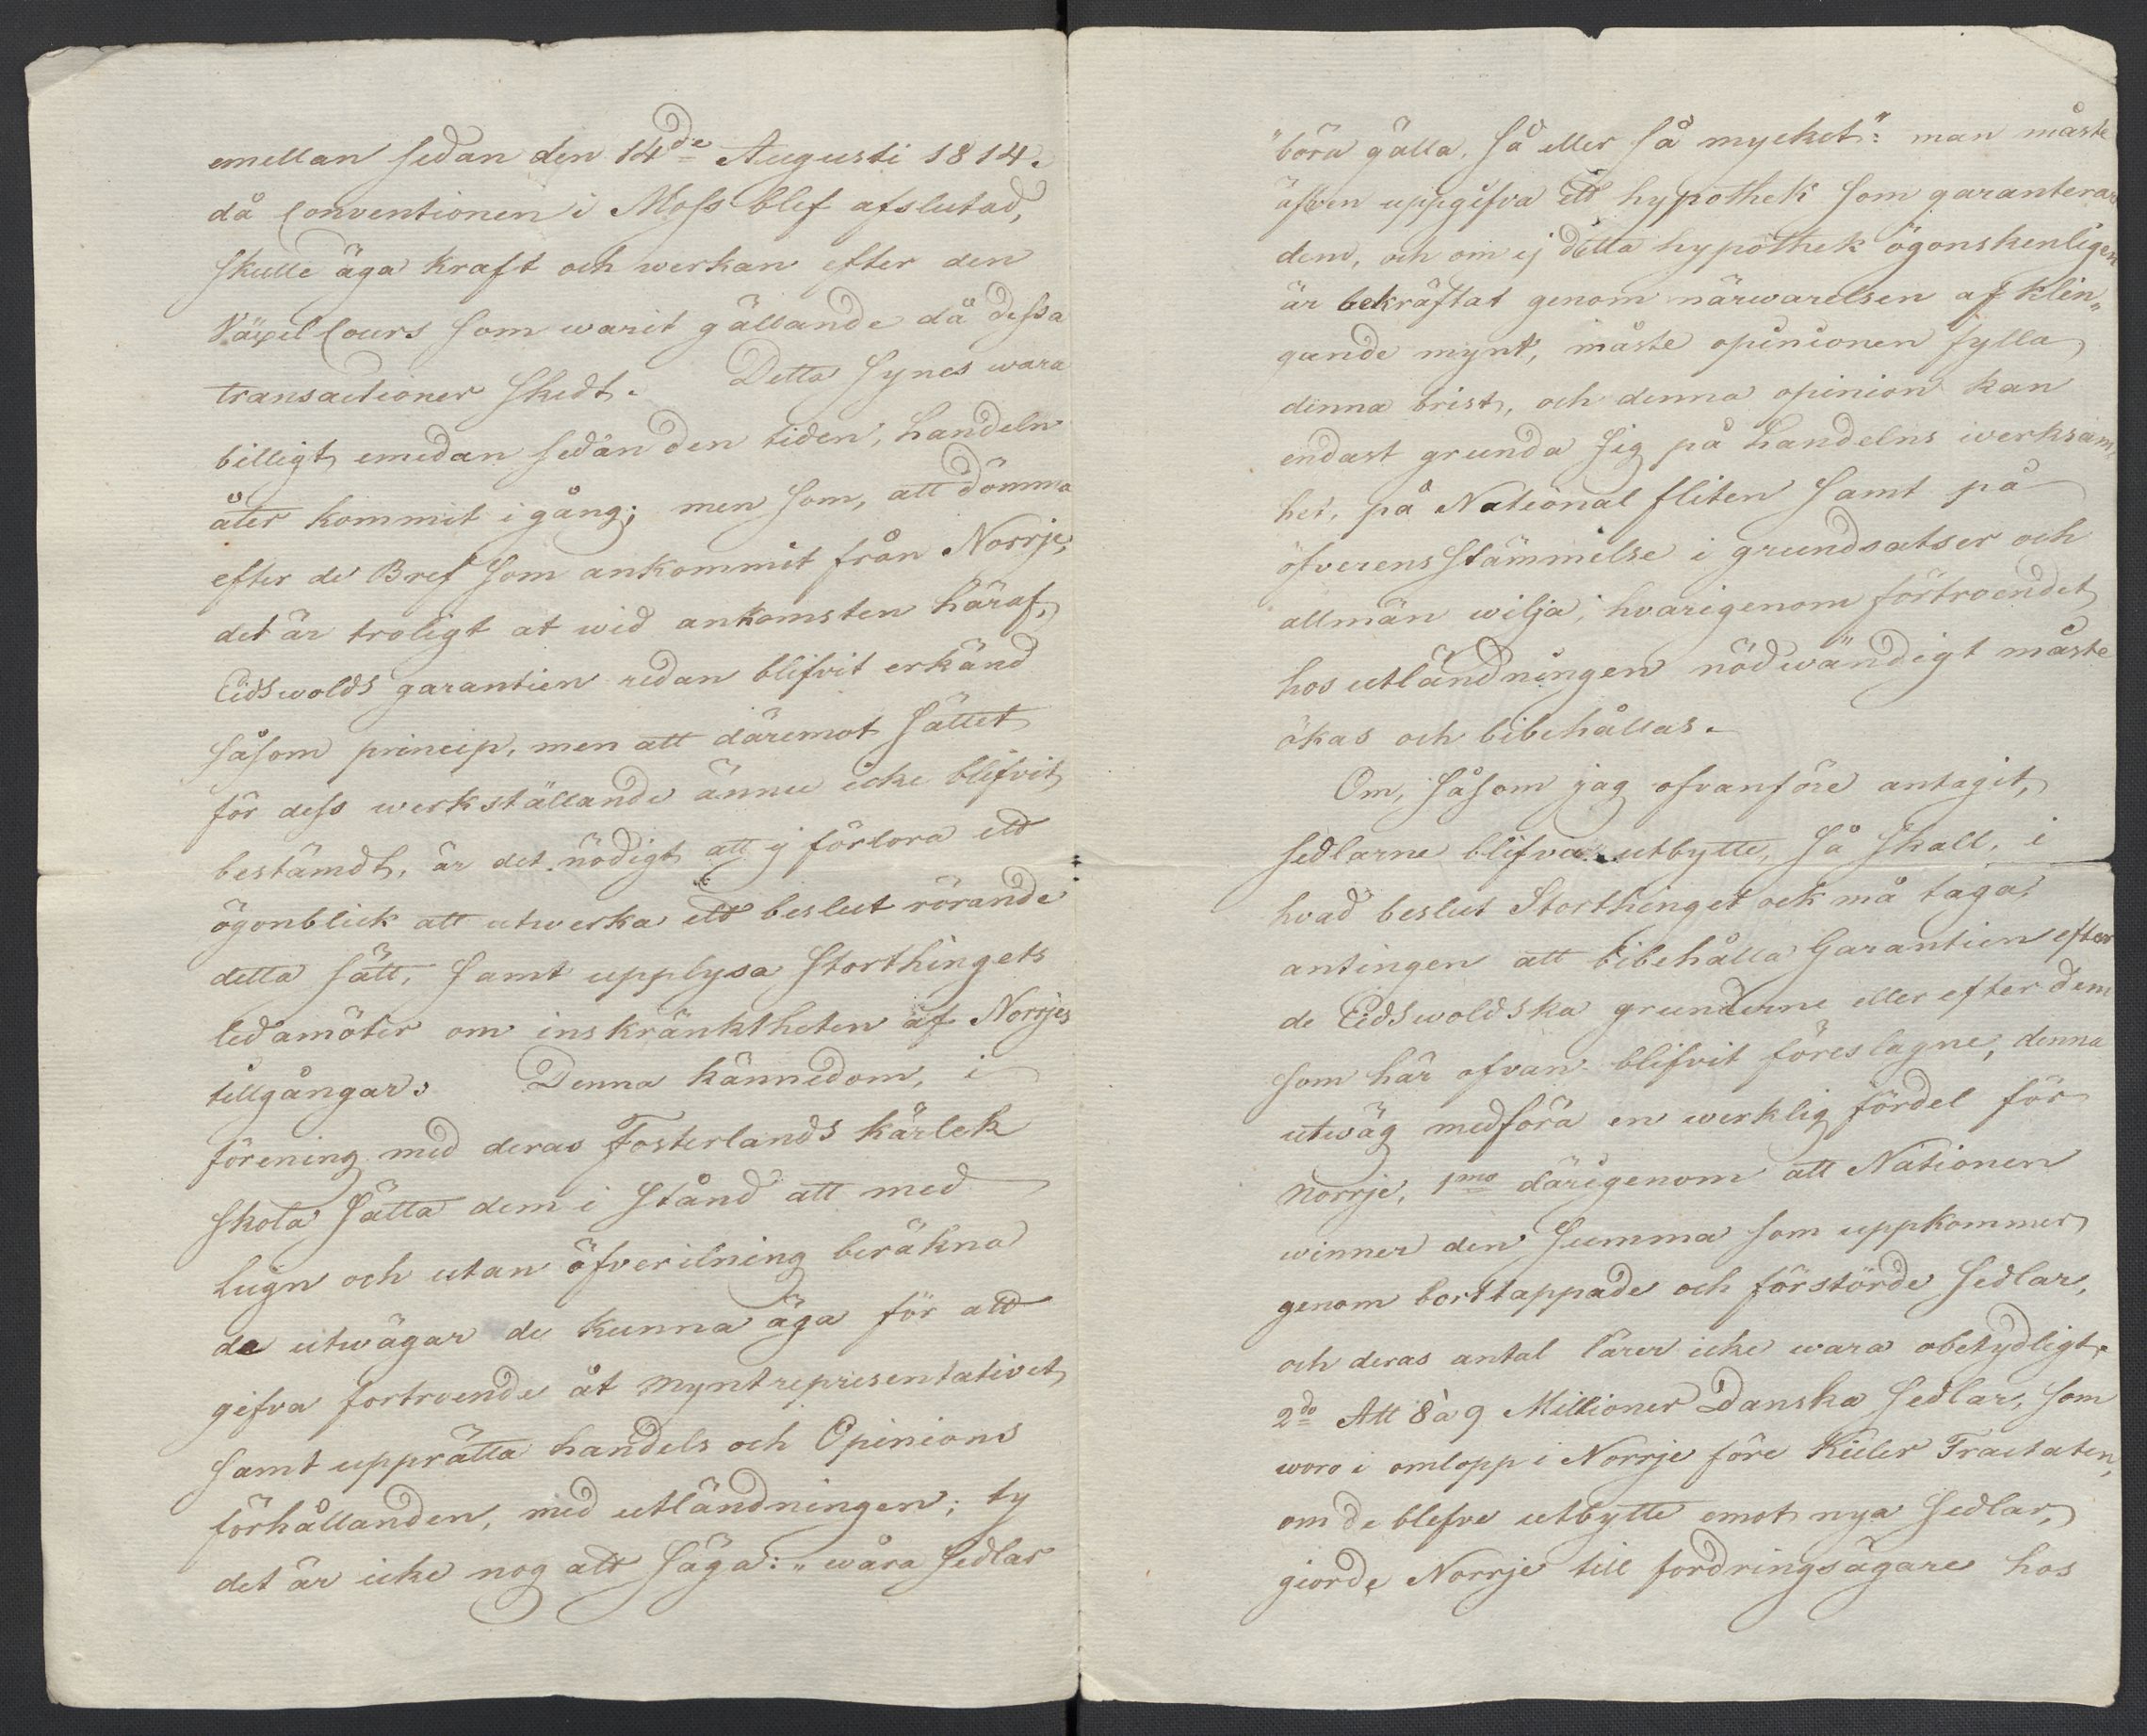 emellan sedan den 14de Augusti 1814.
då Conventionen i Moss blef afslutad,
skulle äga kraft och werkan efter den
Växel Cours som warit gällande då dessa
transactioner skedt. Detta synes wara
billigt emedan sedan den tiden, handeln
åter kommit i gång; men som, att dömma
efter de Bref som ankommit från Norrje,
det är troligt at wid ankomsten häraf,
Eidswolds garantien redan blifvit erkänd
såsom princip, men att däremot sättet
för dess werkställande ännu icke blifvit
bestämdt, är det nödigt att ej förlora ett
ögonblick att utwerka ett beslut rörande
detta sätt, samt upplysa Storthingets
ledamöter om inskränktheten af Norrjes
tillgångar. Denna kännedom, i
förening med deras Fosterlands kärlek
skola sätta dem i stånd att med
lugn och utan öfverilning beräkna
de utwägar de kunna äga för att
gifva fortroende åt myntrepresentativet
samt upprätta handels och Opinions
förhållanden, med utländningen; ty
det är icke nog att säga: "wåra sedlar
"böra gälla, så eller så mycket": man måste
äfven uppgifva ett hypothek som garanterar
dem, och om ej detta hypothek ögonskenligen
är bekräftat genom närwarelsen af klin„
gande mynt, måste opinionen fylla
denna brist, och denna opinion kan
endast grunda sig på Handelns werksam„
het, på National fliten samt på
öfverensstämmelse i grundsatser och
allmän wilja, hvarigenom förtroendet
hos utländningen nödwändigt måste
ökas och bibehållas.
Om, såsom jag ofvanföre antagit,
sedlarne blifva utbytte, så skall, i
hvad beslut Storthinget ock må taga,
antingen att bibehålla Garantien efter
de Eidswoldska grunderne eller efter dem
som här ofvan blifvit föreslagne, denna
utwäg medföra en werklig fördel för
Norrje, 1mo därigenom att Nationen
winner den Summa som uppkommer
genom borttappade och förstörde sedlar,
och deras antal lärer icke wara obetydligt.
2do Att 8 à 9 Millioner Danska sedlar, som
woro i omlopp i Norrje före Kieler Tractaten,
om de blefve utbytte emot nya sedlar,
giorde Norrje till fordringsägare hos